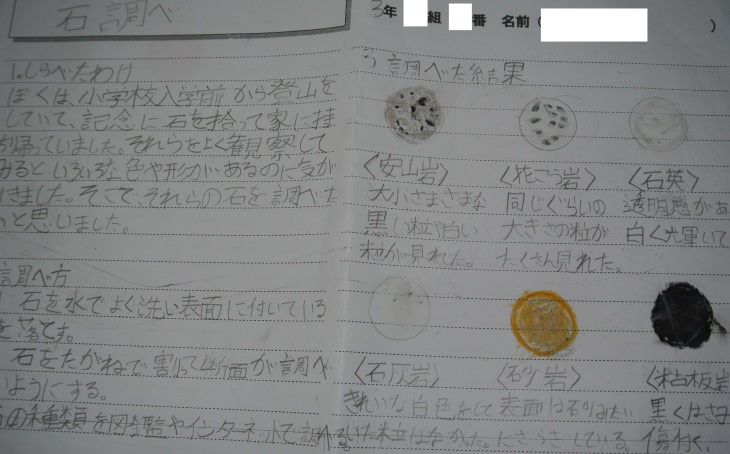 石調べ
3年 組 番 名前( )
1.しらべたわけ
ぼくは、小学校入学前から登山を
していて、記念に石を拾って家に持
ち帰っていました。それらをよく観察して
みるといろいろな色や形があるのに気が
つきました。そこで、それらの石を調べた
いと思いました。
調べ方
石を水でよく洗い表面に付いている
を落とす。
石をたがねで割って断面が調べ
いようにする。
の種類を図鑑やインターネットで調べる
3)調べた結果
〈安山岩〉 〈花こう岩〉 〈石英〉
大小さまざまな 同じぐらいの 透明感があ
黒い粒や白い 大きさの粒が 白く光輝いて
粒が見れた。 たくさん見れた。
〈石灰岩〉 〈砂岩〉 〈粘板岩
きれいな白色をして 表面は砂みたい 黒くはさみ
いた粒はなかった。 にざらざらしている。 傷付く。